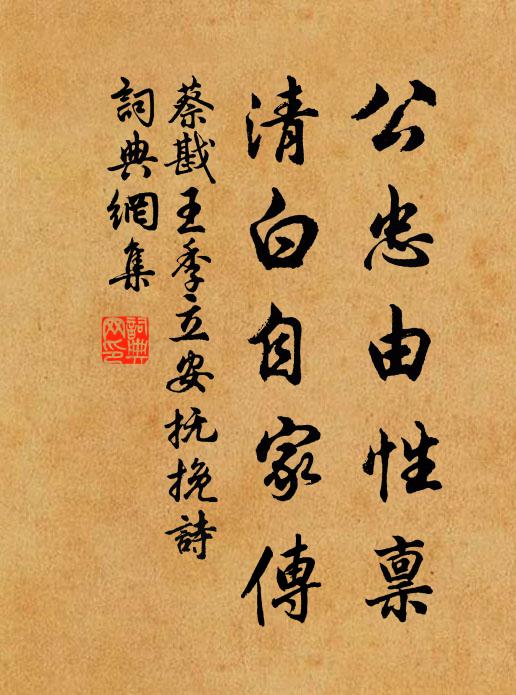 公忠由性禀
清白自家傳
蔡戡王季立安抚挽詩
詞典網集
詞典网印